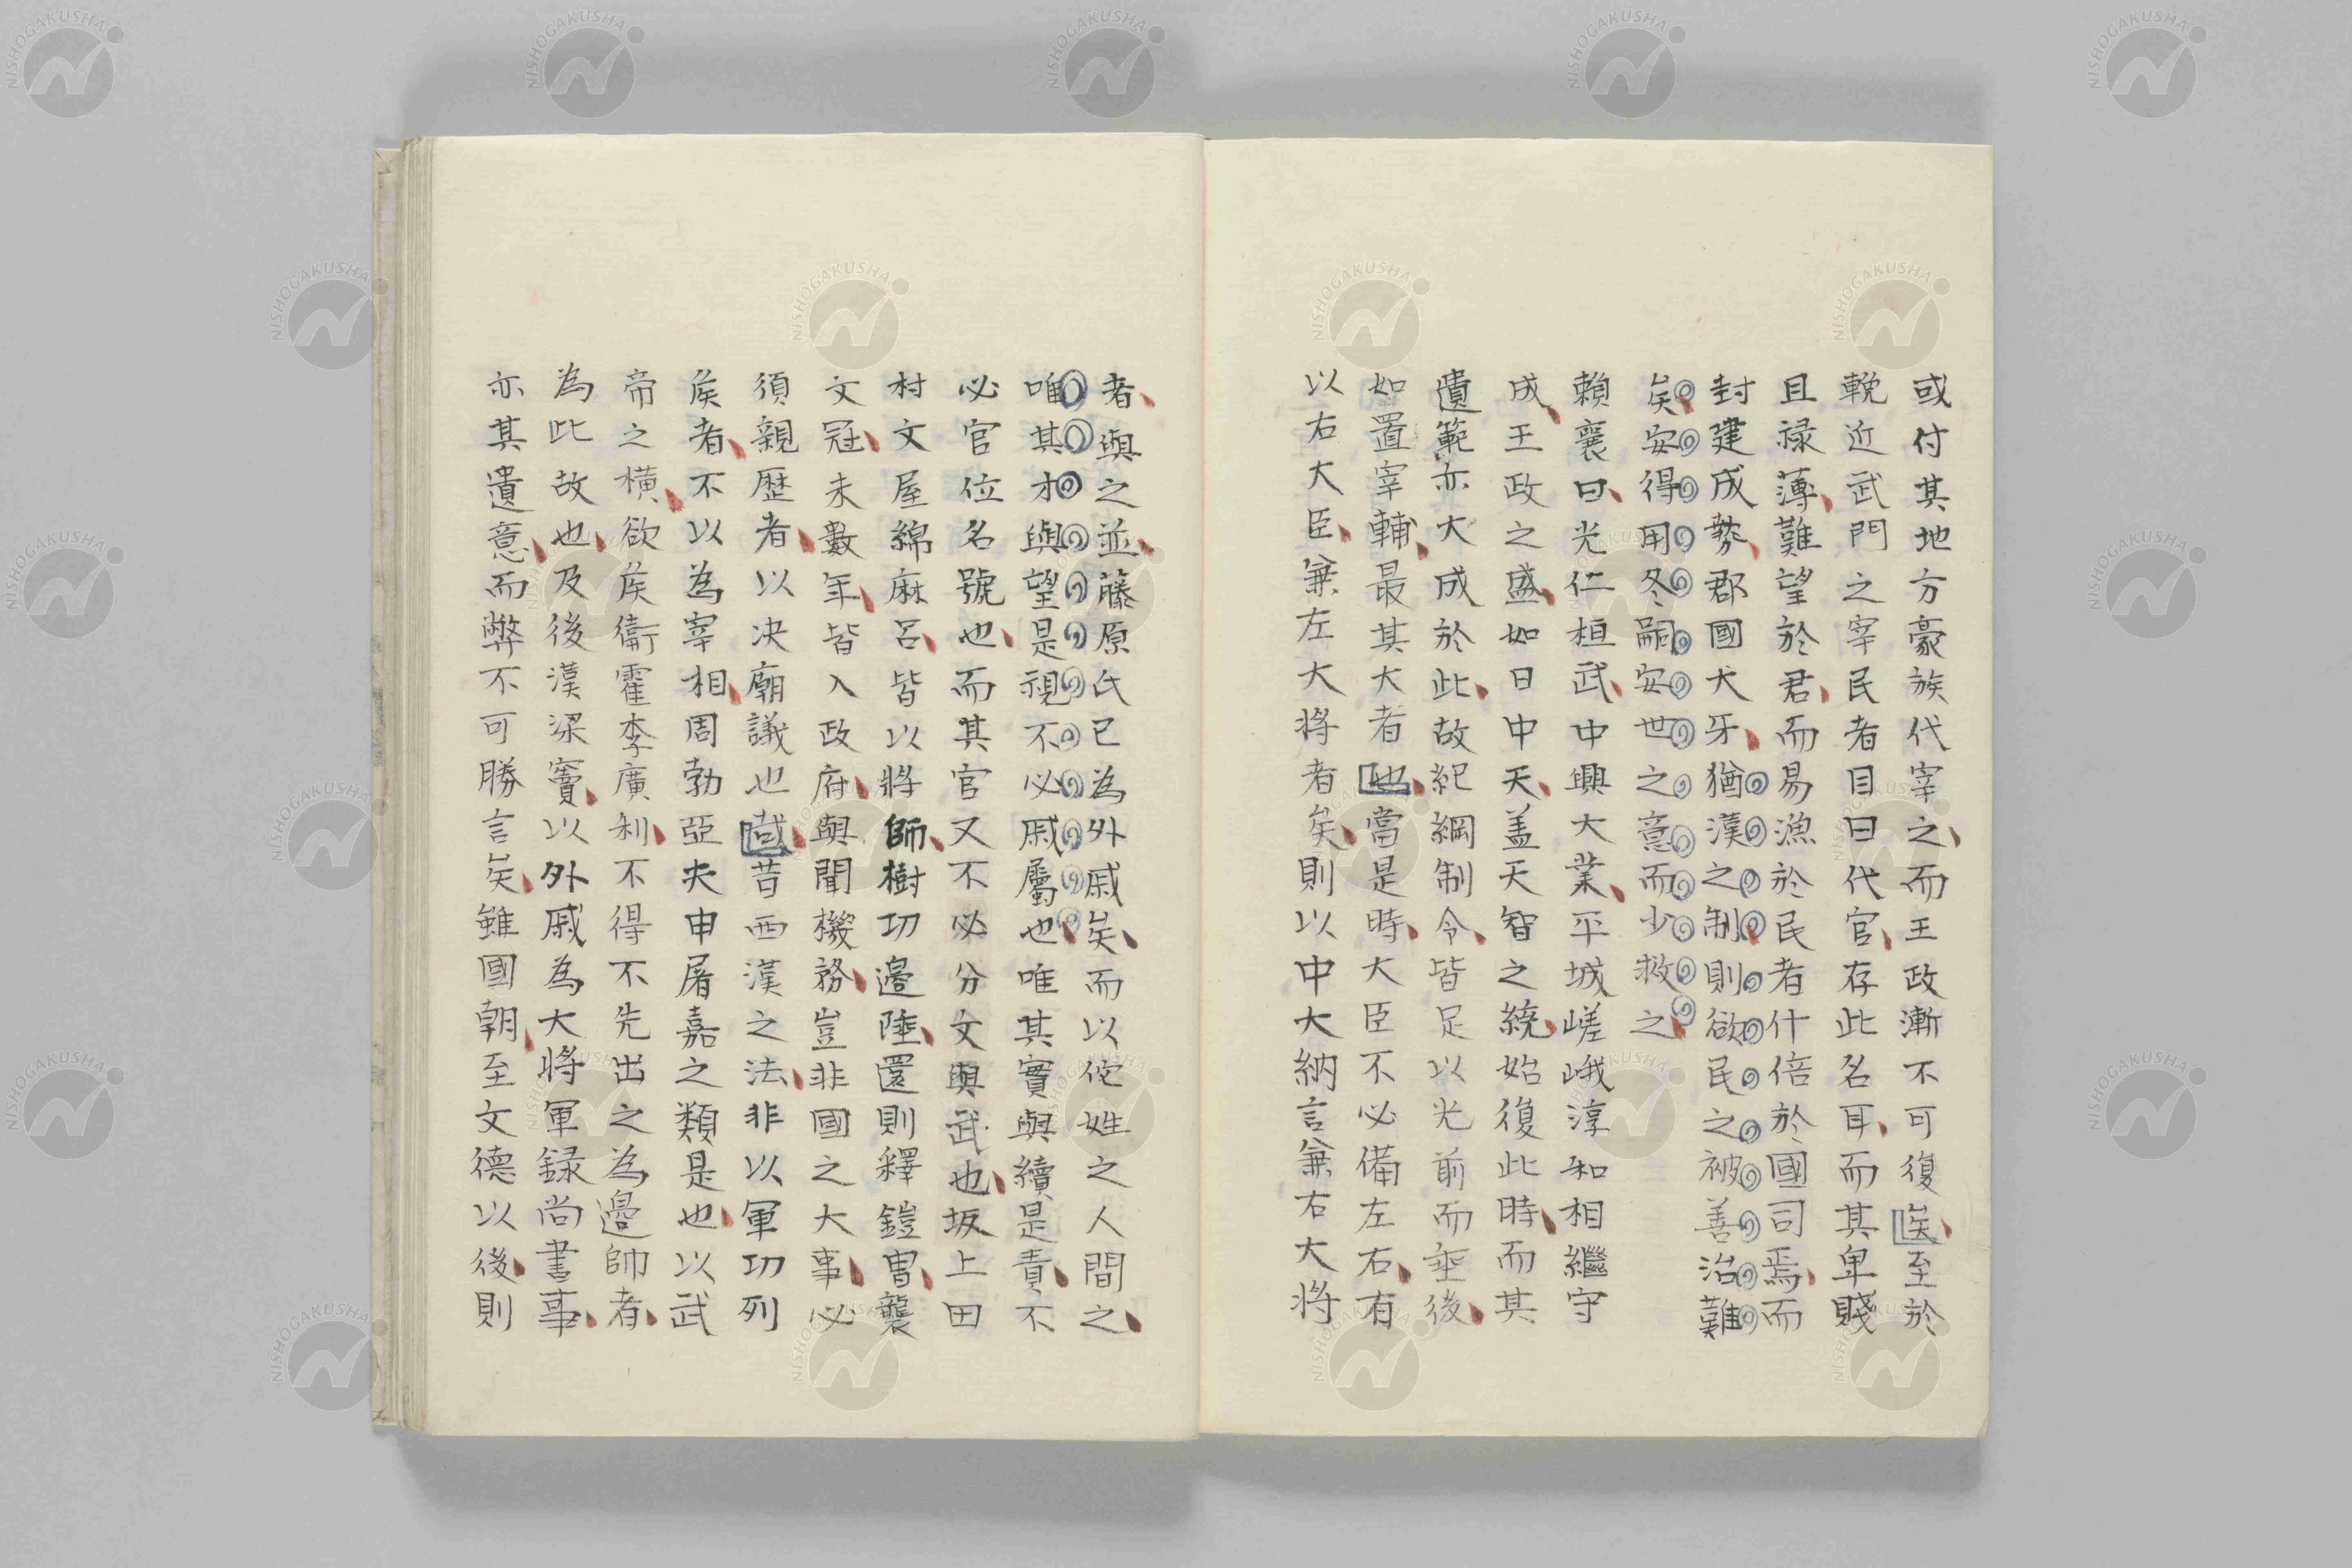 或付其地方豪族代宰之而王政漸不可復矣至於
輓近武門之宰民者目曰代官存此名耳而其卑賤
且祿薄難望於君而易漁於民者什倍於國司焉而
封建成勢郡國犬牙猶漢之制則欲民之被善治難
矣安得用冬嗣安世之意而少救之
賴襄曰光仁桓武中興大業平城嵯峨淳和相繼守
成王政之盛如日中天盖天智之統始復此時而其
遺範亦大成於此故紀綱制令皆足以光前而垂後
如置宰輔最其大者也當是時大臣不必備左右有
以右大臣兼左大將者矣則以中大納言兼右大將
者與之並藤原氏已為外戚矣而以佗姓之人間之
唯其才與望是視不必戚屬也唯其實與續是責不
必官位名號也而其官又不必分文與武也坂上田
村文屋綿麻呂皆以將師樹功邊陲還則釋鎧冑襲
文冠未數年皆入政府與聞機務豈非國之大事必
須親歷者以决廟議也哉昔西漢之法非以軍功列
矦者不以為宰相周勃亞夫申屠嘉之類是也以武
帝之橫欲矦衞霍李廣利不得不先出之為邊帥者
為此故也及後漢梁竇以外戚為大將軍録尚書事
亦其遺意而弊不可勝言矣雖國朝至文德以後則
NISHOGAKUSHA